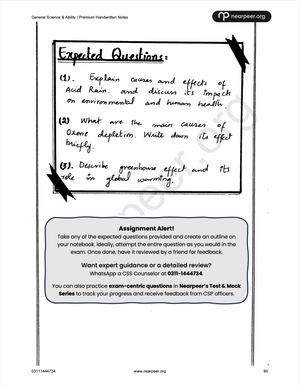 General Science & Ability | Premium Handwritten Notes
nearpeer.org
Expected Questions:
(1). Explain causes and effects of
Acid Rain. and discuss its impacts
on environmental and human health.
(2) What are the main causes of
Ozone depletion. Write down its effect
briefly.
(3). Describe greenhouse effect and its
role in global warming.
nearpeer.org
Assignment Alert!
Take any of the expected questions provided and create an outline on
your notebook. Ideally, attempt the entire question as you would in the
exam. Once done, have it reviewed by a friend for feedback.
Want expert guidance or a detailed review?
WhatsApp a CSS Counselor at 0311-1444734.
You can also practice exam-centric questions in Nearpeer's Test & Mock
Series to track your progress and receive feedback from CSP officers.
03111444734
www.nearpeer.org